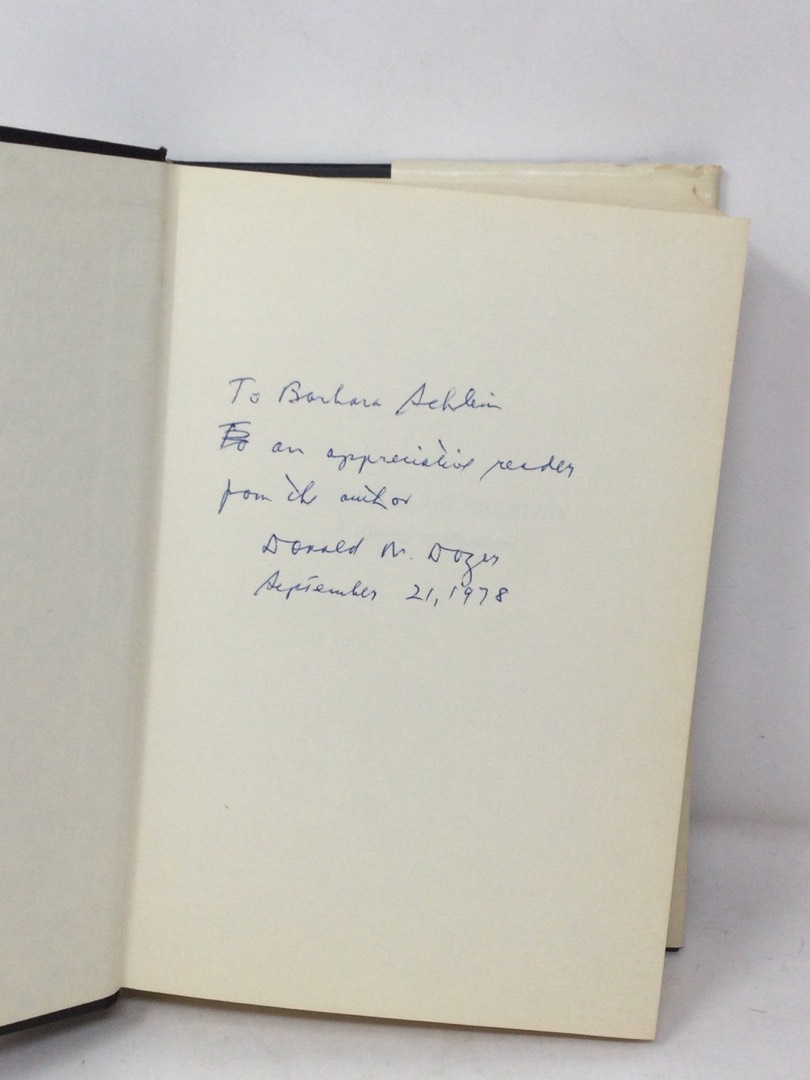 To Barbara Schlein
To an appreciative reader
from the author
Donald M. Dozer
September 21, 1978